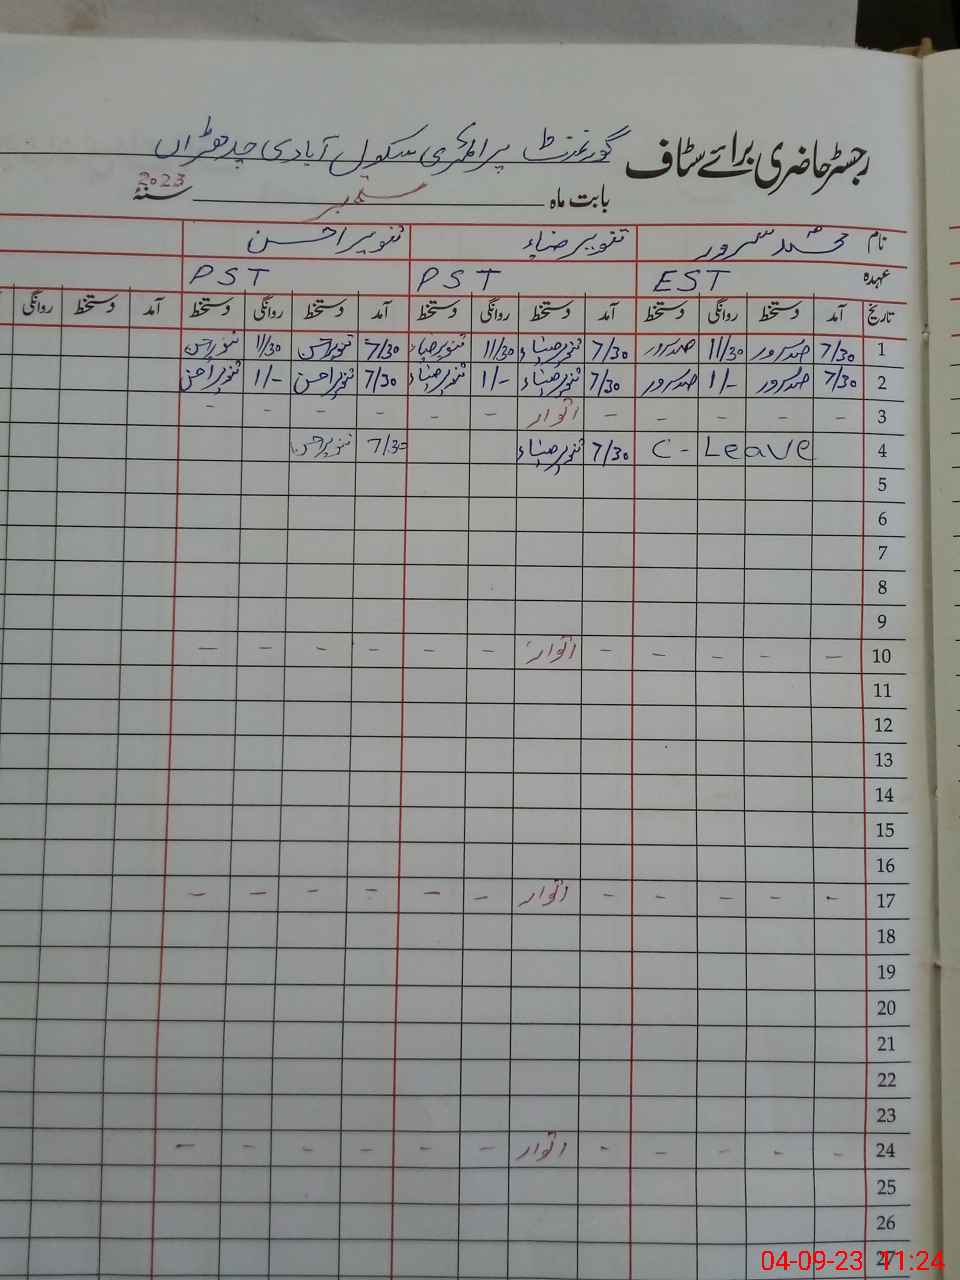 رجسٹر حاضری برائے سٹاف گورنمنٹ پرائمری سکول آبادی چدھڑاں
بابت ماہ ستمبر 2023 سنہ
نام محمد سرور تنویر ضیاء تنویر احسن
عہدہ EST PST PST
تاریخ آمد دستخط روانگی دستخط آمد دستخط روانگی دستخط آمد دستخط روانگی دستخط آمد دستخط روانگی
1 7/30 محمد سرور 11/30 محمد سرور 7/30 تنویر ضیاء 11/30 تنویر ضیاء 7/30 تنویر احسن 11/30 تنویر احسن
2 7/30 محمد سرور 1/- محمد سرور 7/30 تنویر ضیاء 1/- تنویر ضیاء 7/30 تنویر احسن 1/- تنویر احسن
3 - - - - - اتوار - - - - - -
4 C-Leave 7/30 تنویر ضیاء 7/30 تنویر احسن
5
6
7
8
9
10 - - - - - اتوار - - - - - -
11
12
13
14
15
16
17 - - - - - اتوار - - - - - -
18
19
20
21
22
23
24 - - - - - اتوار - - - - - -
25
26
27
04-09-23 11:24